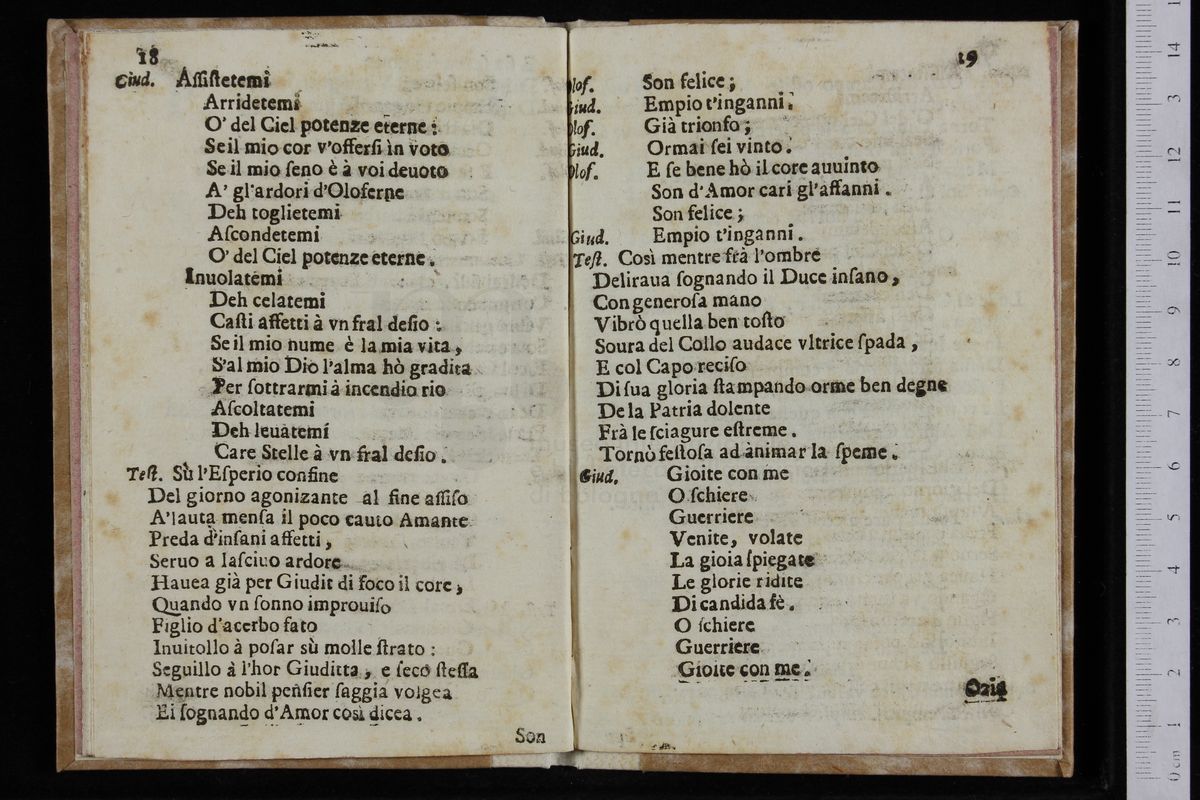 18
Giud. Aſſiſtetemi
Arridetemi
O' del Ciel potenze eterne:
Se il mio cor v'offerſi in voto
Se il mio ſeno è à voi deuoto
A' gl'ardori d'Oloferne
Deh toglietemi
Aſcondetemi
O' del Ciel potenze eterne.
Inuolatemi
Deh celatemi
Caſti affetti à vn fral deſio:
Se il mio nume è la mia vita,
S'al mio Dio l'alma hò gradita
Per ſottrarmi à incendio rio
Aſcoltatemi
Deh leuatemi
Care Stelle à vn fral deſio.
Teſt. Sù l'Eſperio confine
Del giorno agonizante al fine aſſiſo
A'lauta menſa il poco cauto Amante
Preda d'inſani affetti,
Seruo a laſciuo ardore
Hauea già per Giudit di foco il core,
Quando vn ſonno improuiſo
Figlio d'acerbo fato
Inuitollo à poſar sù molle ſtrato:
Seguillo à l'hor Giuditta, e ſeco ſteſſa
Mentre nobil penſier ſaggia volgea
Ei ſognando d'Amor così dicea.
Son
19
Olof. Son felice;
Giud. Empio t'inganni.
Olof. Già trionfo;
Giud. Ormai ſei vinto.
Olof. E ſe bene hò il core auuinto
Son d'Amor cari gl'affanni.
Son felice;
Giud. Empio t'inganni.
Teſt. Così mentre frà l'ombre
Deliraua ſognando il Duce inſano,
Con generoſa mano
Vibrò quella ben toſto
Soura del Collo audace vltrice ſpada,
E col Capo reciſo
Di ſua gloria ſtampando orme ben degne
De la Patria dolente
Frà le ſciagure eſtreme.
Tornò feſtoſa ad animar la ſpeme.
Giud. Gioite con me
O ſchiere
Guerriere
Venite, volate
La gioia ſpiegate
Le glorie ridite
Di candida fè.
O ſchiere
Guerriere
Gioite con me.
Ozia
0 cm 1 2 3 4 5 6 7 8 9 10 11 12 3 14